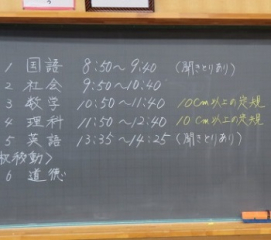 1 国語 8:50～9:40 (聞きとりあり)
2 社会 9:50～10:40
3 数学 10:50～11:40 10cm以上の定規
4 理科 11:50～12:40 10cm以上の定規
5 英語 13:35～14:25 (聞きとりあり)
移動＞
6 道徳